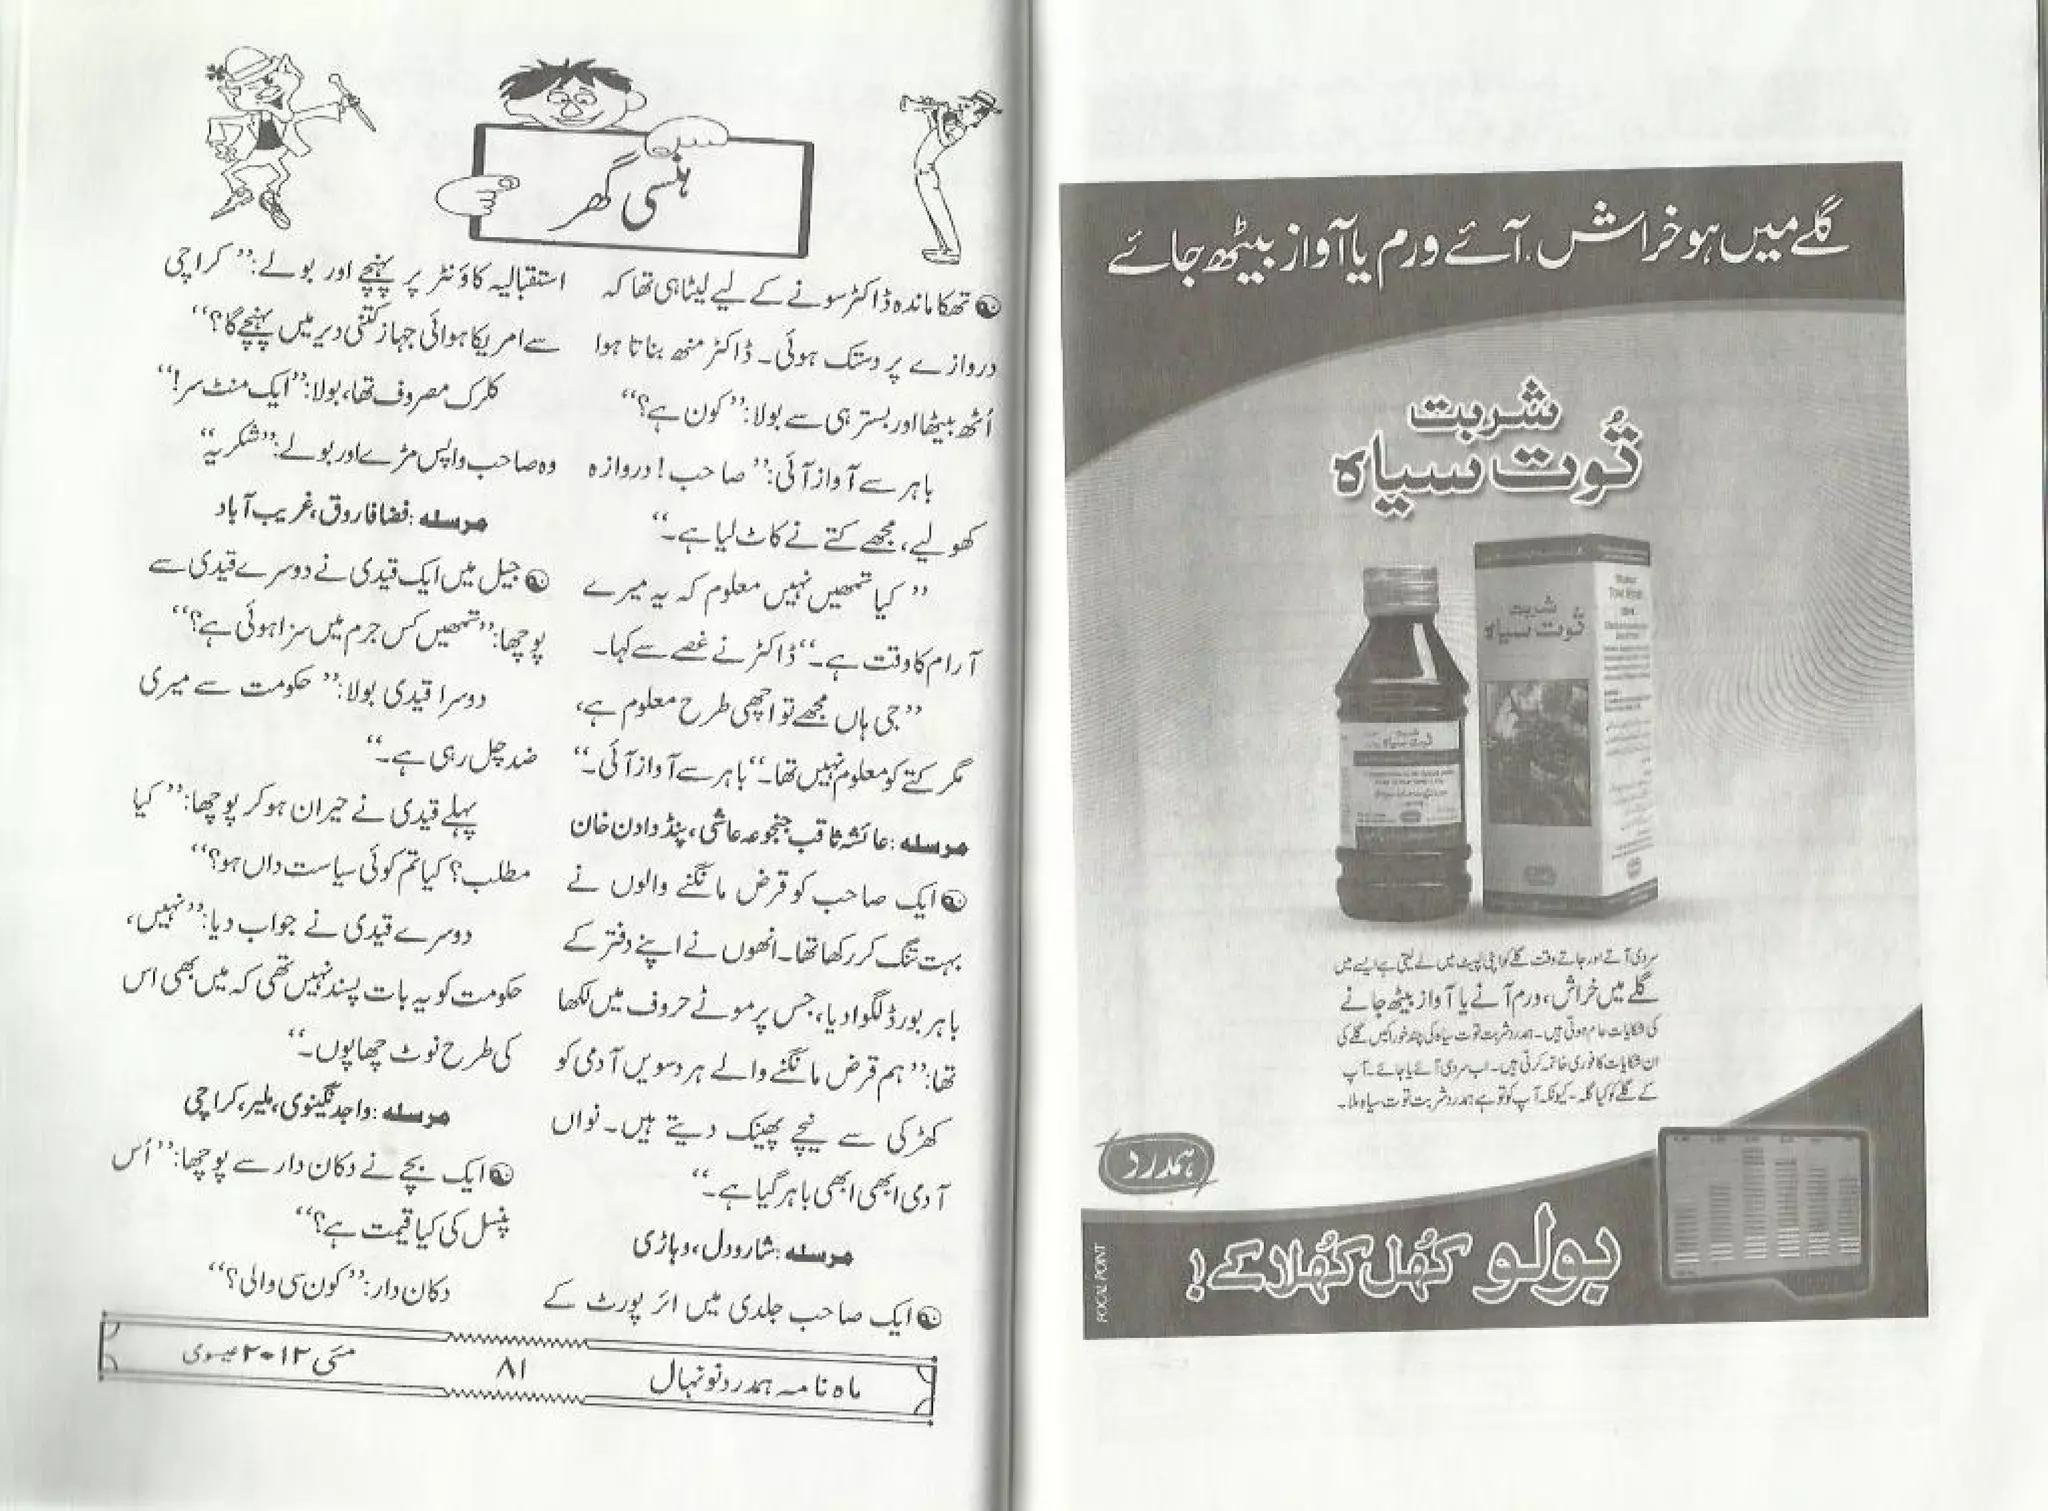 ہنسی گھر
تھکا ماندہ ڈاکٹر سونے کے لیے لیٹا ہی تھا کہ
دروازے پر دستک ہوئی۔ ڈاکٹر منھ بناتا ہوا
اُٹھ بیٹھا اور بستر ہی سے بولا: ”کون ہے؟“
باہر سے آواز آئی: ”صاحب! دروازہ
کھولیے، مجھے کتے نے کاٹ لیا ہے۔“
”کیا تمھیں نہیں معلوم کہ یہ میرے
آرام کا وقت ہے۔“ ڈاکٹر نے غصے سے کہا۔
”جی ہاں مجھے تو اچھی طرح معلوم ہے،
مگر کتے کو معلوم نہیں تھا۔“ باہر سے آواز آئی۔“
مرسلہ: عائشہ ثاقب جنجوعہ عاشی، پنڈ دادن خان
ایک صاحب کو قرض مانگنے والوں نے
بہت تنگ کر رکھا تھا۔ انھوں نے اپنے دفتر کے
باہر بورڈ لگوا دیا، جس پر موٹے حروف میں لکھا
تھا: ”ہم قرض مانگنے والے ہر دسویں آدمی کو
کھڑکی سے نیچے پھینک دیتے ہیں۔ نواں
آدمی ابھی ابھی باہر گیا ہے۔“
مرسلہ: شارودل، وہاڑی
ایک صاحب جلدی میں ائر پورٹ کے
استقبالیہ کاؤنٹر پر پہنچے اور بولے: ”کراچی
سے امریکا ہوائی جہاز کتنی دیر میں پہنچے گا؟“
کلرک مصروف تھا، بولا: ”ایک منٹ سر!“
وہ صاحب واپس مڑے اور بولے: ”شکریہ“
مرسلہ: فضا فاروق، غریب آباد
جیل میں ایک قیدی نے دوسرے قیدی سے
پوچھا: ”تمھیں کس جرم میں سزا ہوئی ہے؟“
دوسرا قیدی بولا: ”حکومت سے میری
ضد چل رہی ہے۔“
پہلے قیدی نے حیران ہو کر پوچھا: ”کیا
مطلب؟ کیا تم کوئی سیاست داں ہو؟“
دوسرے قیدی نے جواب دیا: ”نہیں،
حکومت کو یہ بات پسند نہیں تھی کہ میں بھی اس
کی طرح نوٹ چھاپوں۔“
مرسلہ: واجد نگینوی، ملیر، کراچی
ایک بچے نے دکان دار سے پوچھا: ”اُس
پنسل کی کیا قیمت ہے؟“
دکان دار: ”کون سی والی؟“
ماہ نامہ ہمدرد نونہال
۸۱
مئی ۲۰۱۲ عیسوی
گلے میں ہو خراش، آئے ورم یا آواز بیٹھ جائے
شربت
تُوت سیاہ
شربت
توت سیاہ
سردی آتے اور جاتے وقت گلے کو اپنی لپیٹ میں لے لیتی ہے ایسے میں
گلے میں خراش، ورم آنے یا آواز بیٹھ جانے
کی شکایات عام ہوتی ہیں۔ ہمدرد شربت توت سیاہ کی چند خوراکیں گلے کی
ان شکایات کا فوری خاتمہ کرتی ہیں۔ اب سردی آئے یا جائے۔ آپ
کے گلے کو کیا گلہ۔ کیونکہ آپ کو تو ہے ہمدرد شربت توت سیاہ ملا۔
ہمدرد
بولو کھُل کھُلا کے!
FOCAL POINT